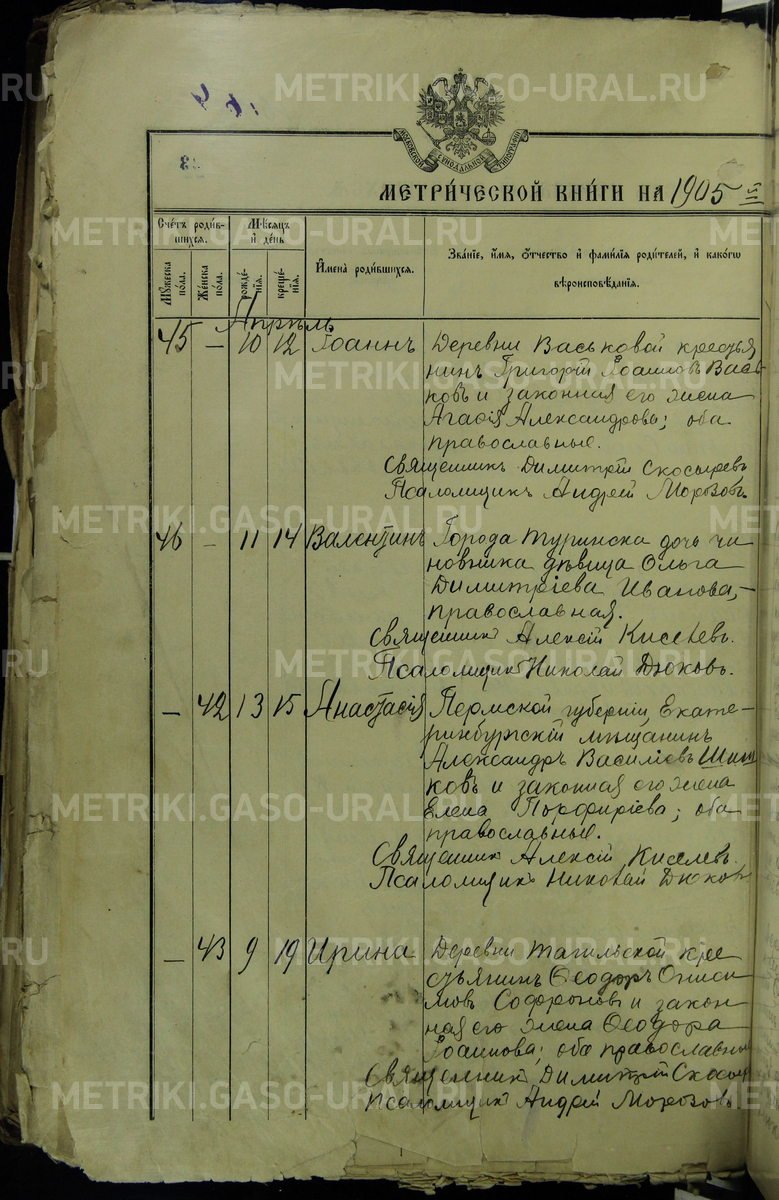 METRIKI.GASO-URAL.RU
МОСКОВСКОЙ СѴНОДАЛЬНОЙ ТИПОГРАФІИ
МЕТРИ́ЧЕСКОЙ КНИ́ГИ НА 1905
Сче́тъ роди́в-
шихсѧ.
Мѣ́сѧцъ
и҆ де́нь
Мꙋ́жеска по́ла.
Же́нска по́ла.
рожде́нїѧ.
креще́нїѧ.
И҆мена̀ роди́вшихсѧ.
Зва́нїе, и҆́мѧ, ѻ҆́тчество и҆ фами́лїѧ роди́телей, и҆ како́гѡ
вѣроисповѣ́данїѧ.
Апрѣль
45 — 10 12 Іоаннъ Деревни Васьковой крестья
нинъ Григорій Іоанновъ Вась
ковъ и законная его жена
Агафія Александрова; оба
православные.
Священникъ Димитрій Скосыревъ
Псаломщикъ Андрей Морозовъ
46 — 11 14 Валентинъ Города Туринска дочь чи
новника дѣвица Ольга
Димитріева Иванова,
православная.
Священникъ Алексій Киселевъ.
Псаломщикъ Николай Дюковъ.
— 42 13 15 Анастасія Пермской губерніи, Екате-
ринбургскій мѣщанинъ
Александръ Василіевъ
ковъ и законная его жена
Елена Порфиріева; оба
православные.
Священникъ Алексій Киселевъ.
Псаломщикъ Николай Дюковъ
— 43 9 19 Ирина Деревни Тагильской кре
стьянинъ Ѳеодоръ Ониси
мовъ Софроновъ и закон
ная его жена Ѳеодора
Іоаннова; оба православны
Священникъ Димитрій Скосы
Псаломщикъ Андрей Морозовъ